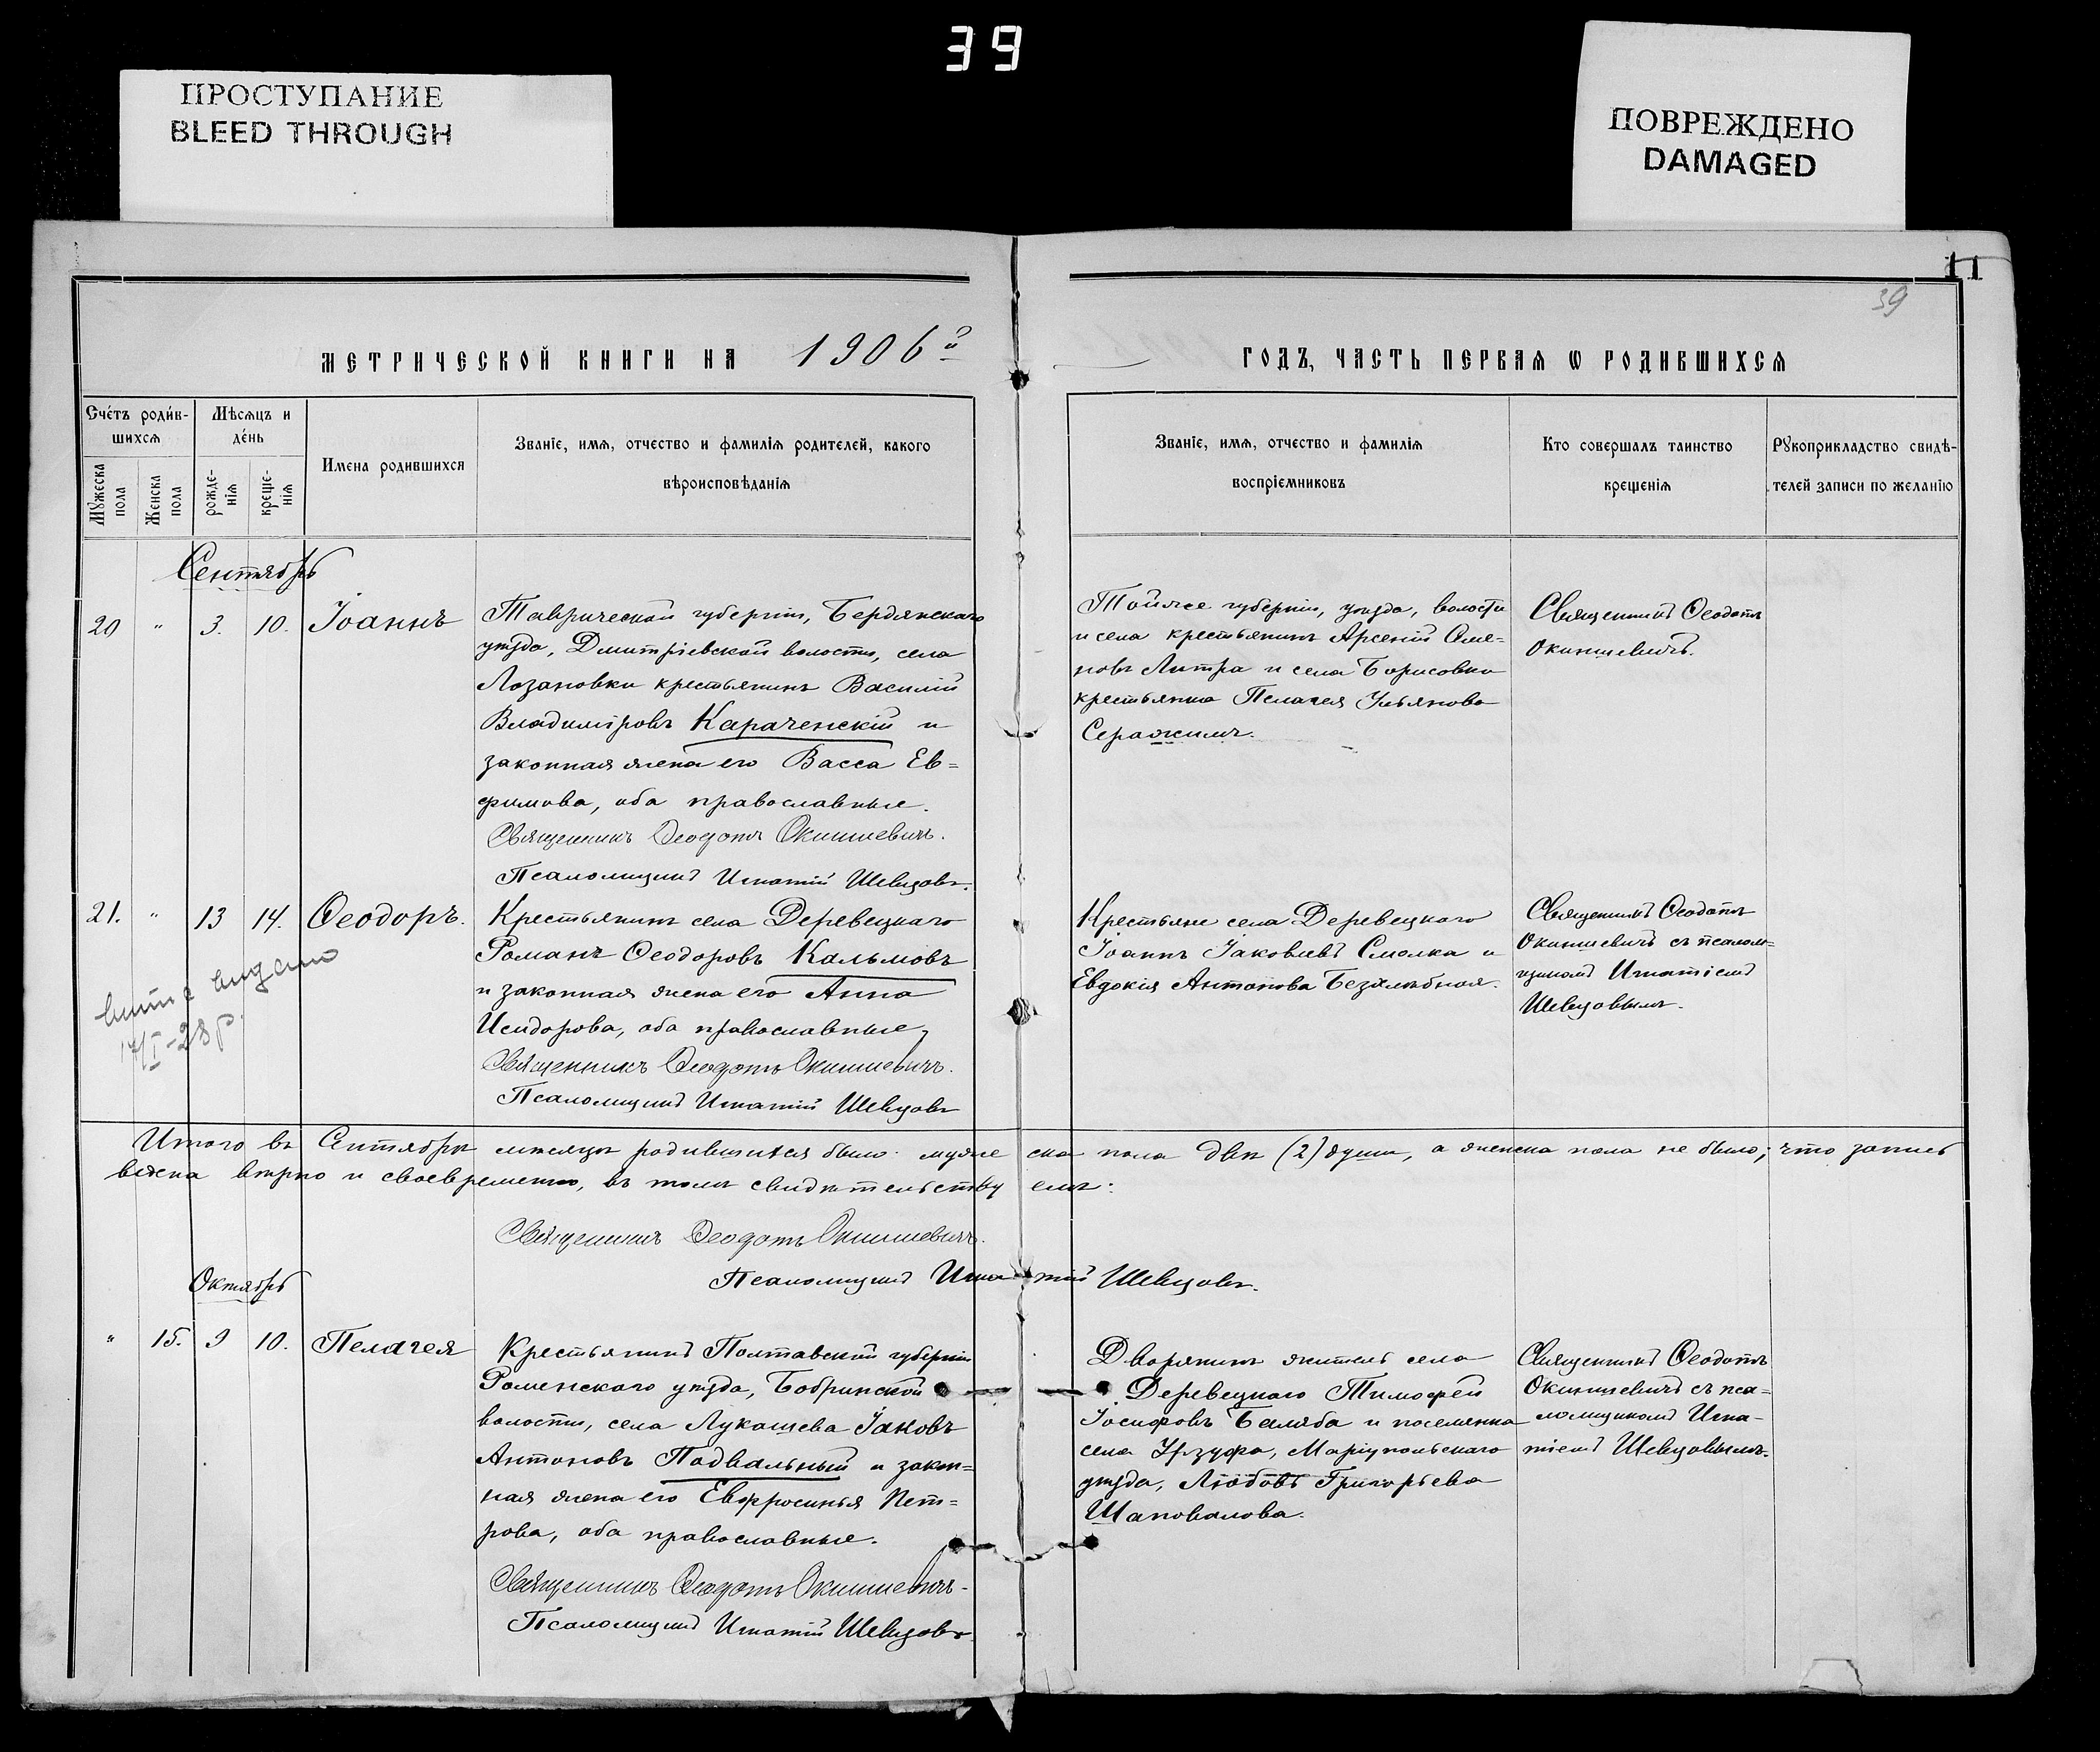 39
ПРОСТУПАНИЕ
BLEED THROUGH
ПОВРЕЖДЕНО
DAMAGED
11
39
МЕТРИЧЕСКОЙ КНИГИ НА 1906й
ГОДЪ, ЧАСТЬ ПЕРВАЯ Ѡ РОДИВШИХСЯ
Счётъ роди́в-
шихся
Мѣсяцъ и
де́нь
Мужеска пола
Женска пола
рожде-
нія
креще-
нія
Имена родившихся
Званіе, имя, отчество и фамилія родителей, какого
вѣроисповѣданія
Званіе, имя, отчество и фамилія
воспріемниковъ
Кто совершалъ таинство
крещенія
Рукоприкладство свидѣ-
телей записи по желанію
Сентябрь
20 " 3. 10. Іоаннъ
Таврической губерніи, Бердянскаго
уѣзда, Дмитріевской волости, села
Лозановки крестьянинъ Василій
Владиміровъ Караченскій и
законная жена его Васса Ев=
фимова, оба православные.
Священникъ Ѳеодотъ Окиншевичъ.
Псаломщикъ Игнатій Шевцовъ.
Тойже губерніи, уѣзда, волости
и села крестьянинъ Арсеній Сме=
новъ Литра и села Борисовки
крестьянка Пелагея Ульянова
Серажимъ.
Священникъ Ѳеодотъ
Окиншевичъ.
21. " 13 14. Ѳеодоръ.
Крестьянинъ села Деревецкаго
Романъ Ѳеодоровъ Кальмовъ
и законная жена его Анна
Исидорова, оба православные,
Священникъ Ѳеодотъ Окиншевичъ.
Псаломщикъ Игнатій Шевцовъ
Крестьяне села Деревецкаго
Іоаннъ Іаковлевъ Смолка и
Евдокія Антонова Безхлѣбная.
Священникъ Ѳеодотъ
Окиншевичъ съ псалом=
щикомъ Игнатіемъ
Шевцовымъ.
витяг видано
17/I-28р.
Итого въ Сентябрѣ мѣсяцѣ родившихся было: муже ска пола двѣ (2) души, а женска пола не было; что запись
ведена вѣрно и своевременно, въ томъ свидѣтельству емъ:
Священникъ Ѳеодотъ Окиншевичъ.
Псаломщикъ Игна тій Шевцовъ.
Октябрь
" 15. 9 10. Пелагея
Крестьянинъ Полтавской губерніи
Роменскаго уѣзда, Бобринской
волости, села Лукашева Іаковъ
Антоновъ Подвальный и закон=
ная жена его Евфросинья Пет=
рова, оба православные.
Священникъ Ѳеодотъ Окиншевичъ.
Псаломщикъ Игнатій Шевцовъ.
Дворянинъ житель села
Деревецкаго Тимофей
Іосифовъ Беляба и поселянка
села Урзуфа, Маріупольскаго
уѣзда, Любовь Григорьева
Шаповалова.
Священникъ Ѳеодотъ
Окиншевичъ съ пса=
ломщикомъ Игна-
тіемъ Шевцовымъ.